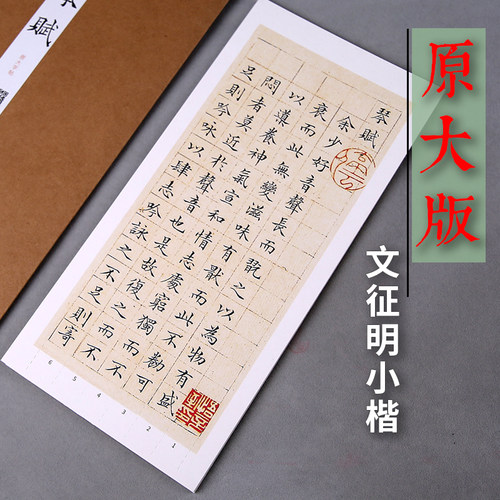 原大版
文征明小楷
琴賦
余少好音聲長而翫之以為物有盛
衰而此無變滋味有猒而此不勌可
以導養神氣宣和情志處窮獨而不
悶者莫近於聲音也是故復之而不
足則吟咏以肆志吟詠之不足則寄
1
2
3
4
5
6
賦